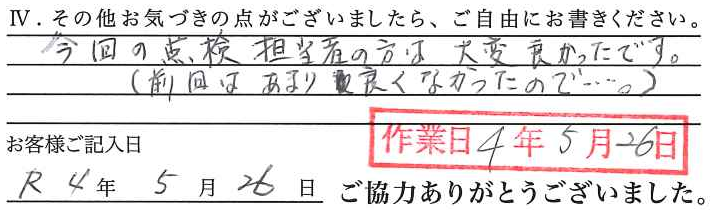 Ⅳ．その他お気づきの点がございましたら、ご自由にお書きください。
今回の点検担当者の方は大変良かったです。
(前回はあまり良くなかったので……。)
お客様ご記入日
作業日4年5月26日
R4年5月26日
ご協力ありがとうございました。